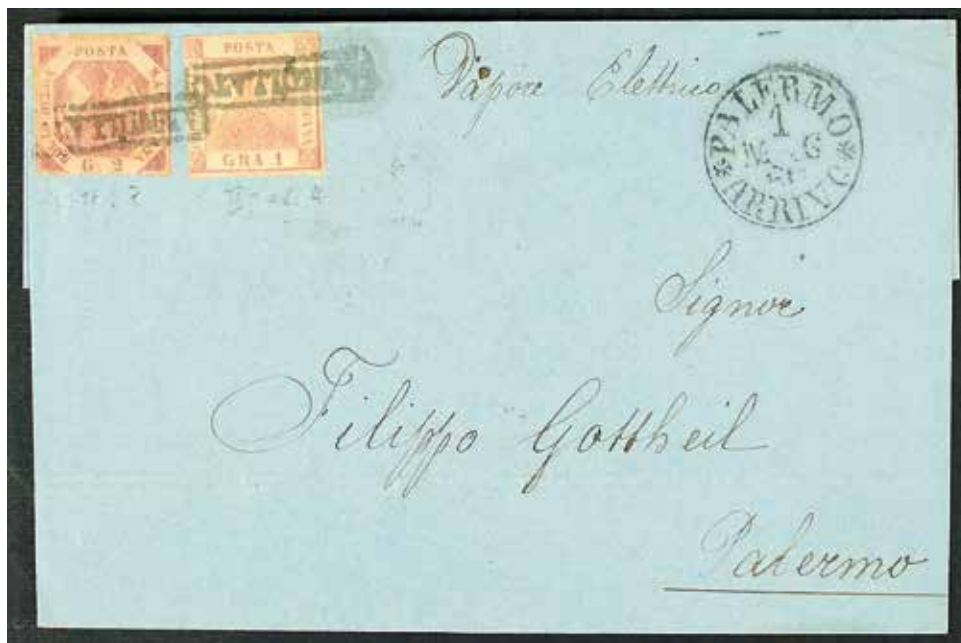 POSTA
G 2
POSTA
GRA 1
ANNULLATO
ANNULLATO
Vapore Elettrico
PALERMO
1
ARRIVO
Signor
Filippo Gottheil
Palermo